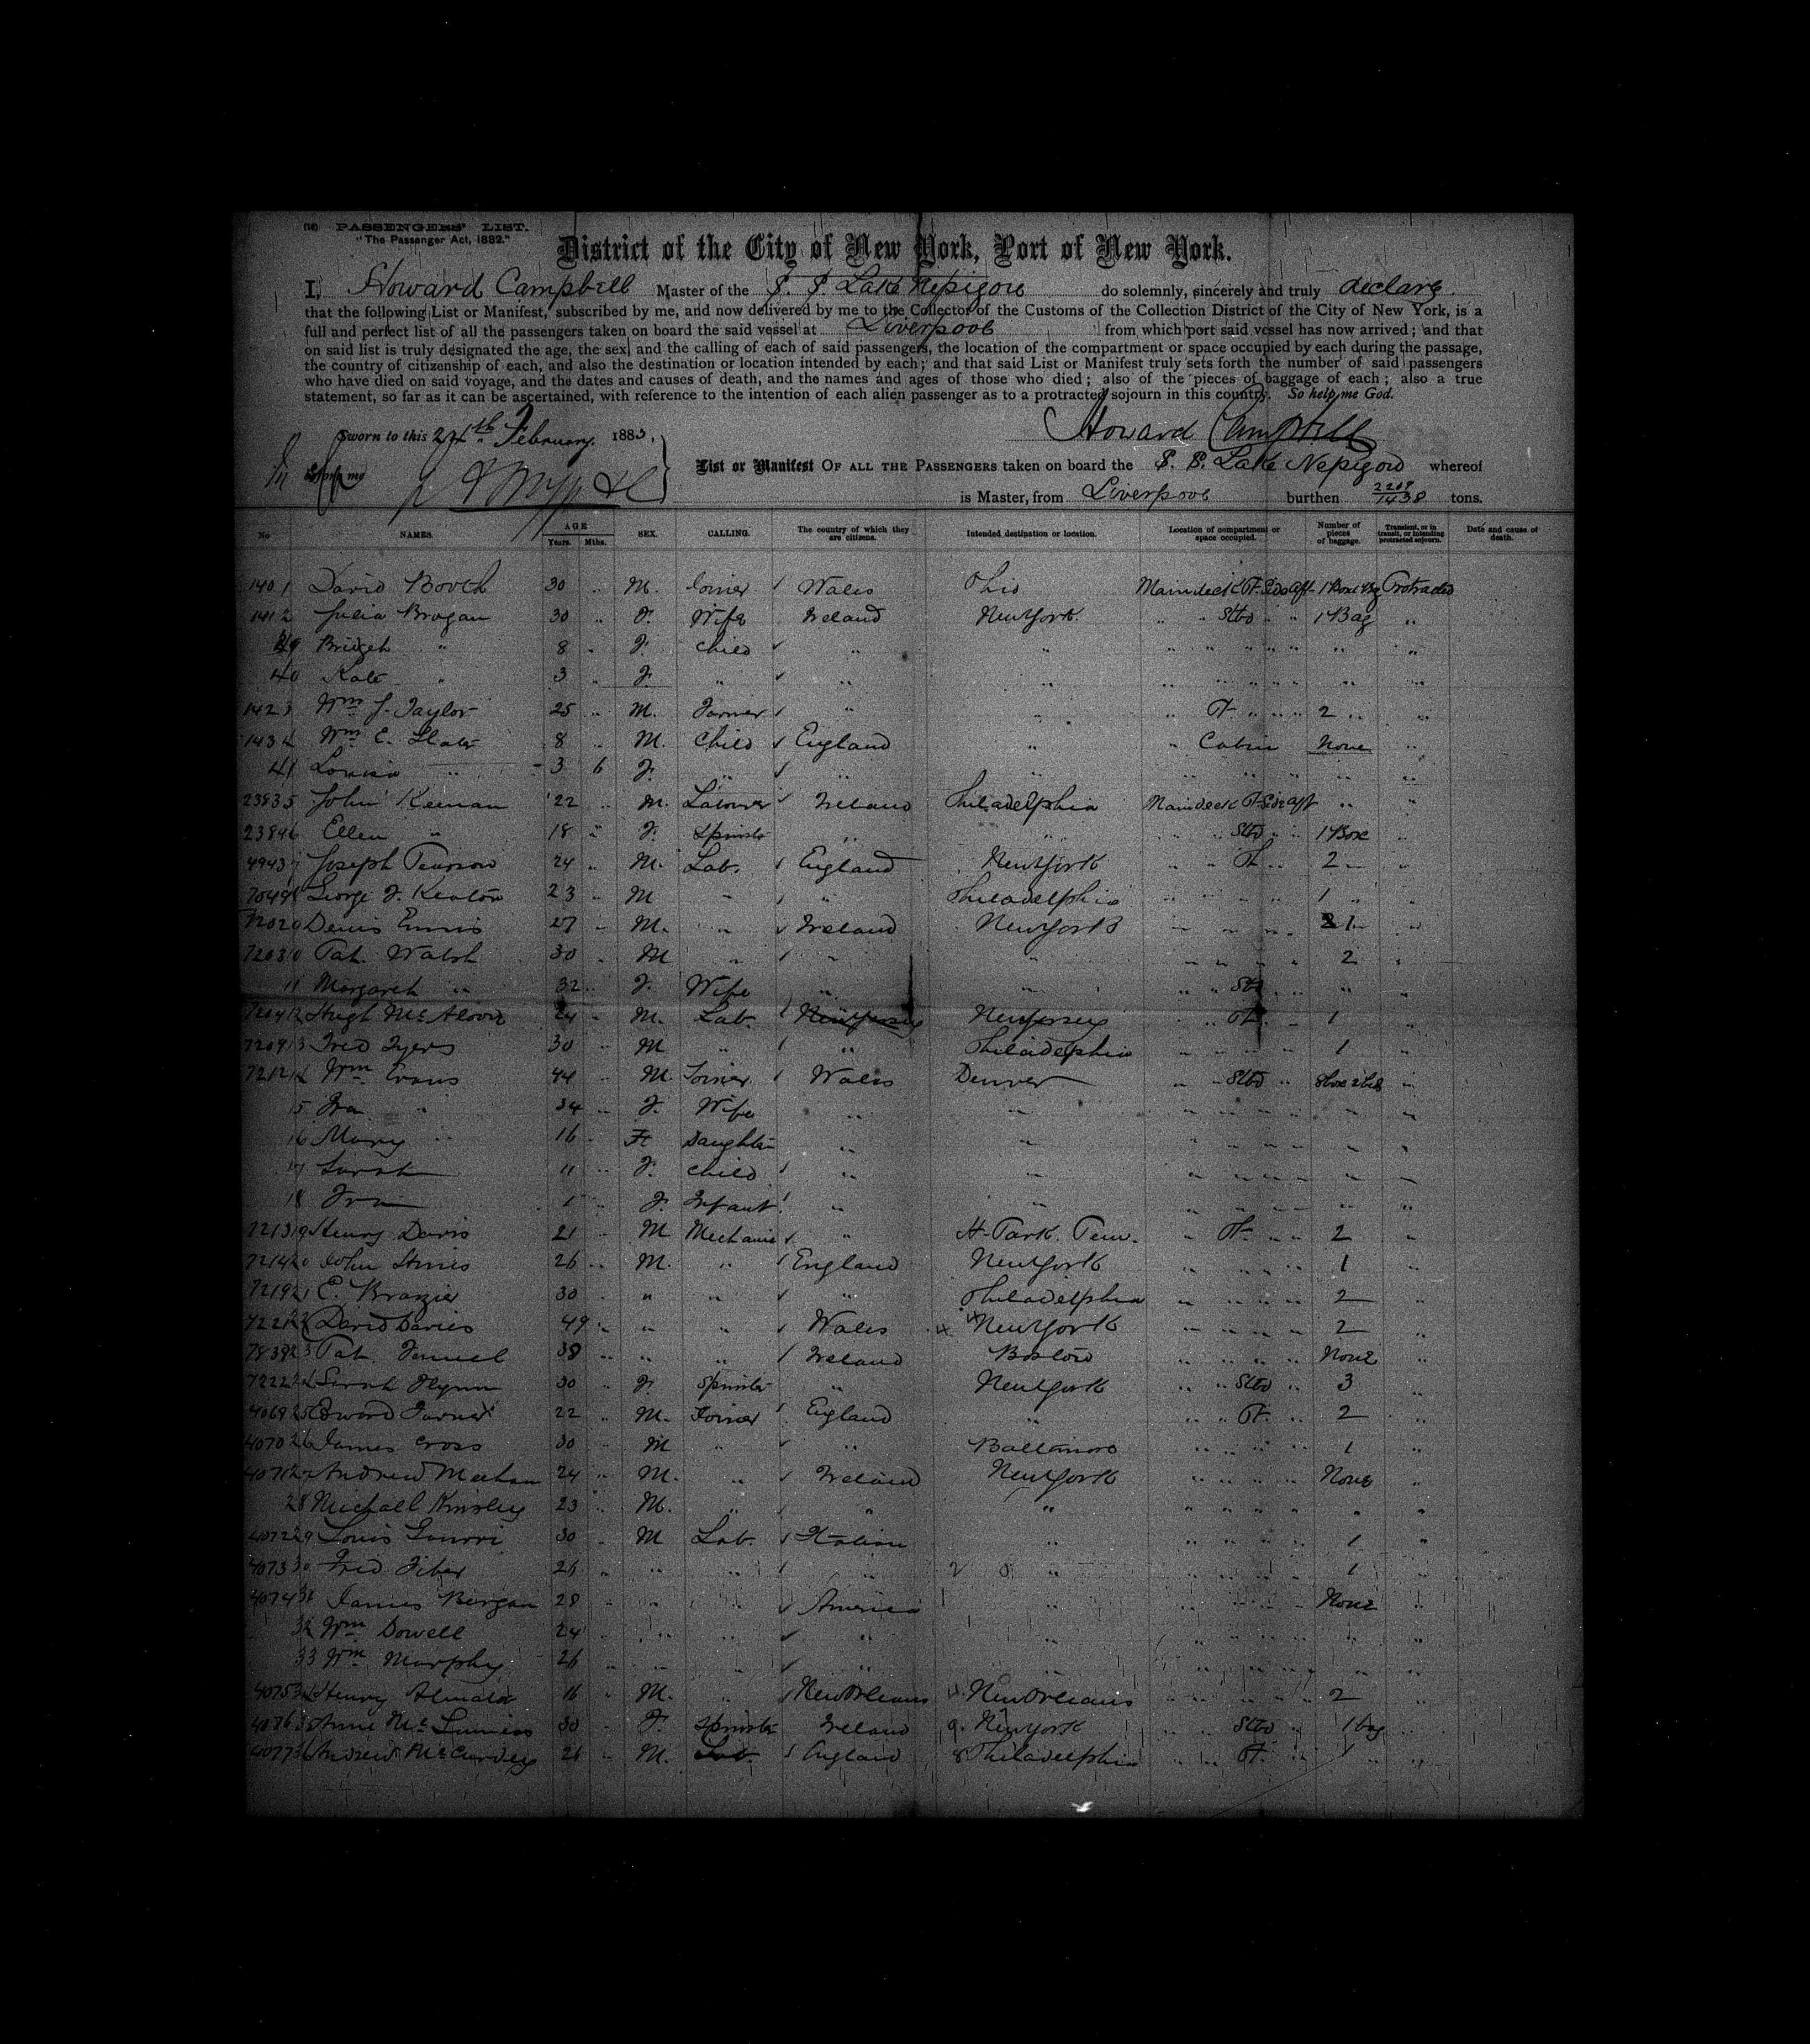 (18) PASSENGERS' LIST.
"The Passenger Act, 1882."
District of the City of New York, Port of New York.
I, Howard Campbell Master of the S. S. Lake Nepigon do solemnly, sincerely and truly declare
that the following List or Manifest, subscribed by me, and now delivered by me to the Collector of the Customs of the Collection District of the City of New York, is a
full and perfect list of all the passengers taken on board the said vessel at Liverpool from which port said vessel has now arrived; and that
on said list is truly designated the age, the sex, and the calling of each of said passengers, the location of the compartment or space occupied by each during the passage,
the country of citizenship of each, and also the destination or location intended by each; and that said List or Manifest truly sets forth the number of said passengers
who have died on said voyage, and the dates and causes of death, and the names and ages of those who died; also of the pieces of baggage of each; also a true
statement, so far as it can be ascertained, with reference to the intention of each alien passenger as to a protracted sojourn in this country. So help me God.
Sworn to this 24th February 1883, Howard Campbell
List or Manifest OF ALL THE PASSENGERS taken on board the S. S. Lake Nepigon whereof
is Master, from Liverpool burthen 2209/1438 tons.
No NAMES. AGE Years. Mths. SEX. CALLING. The country of which they are citizens. Intended destination or location. Location of compartment or space occupied. Number of pieces of baggage. Transient, or in transit, or intending protracted sojourn. Date and cause of death.
140 1 David Booth 30 " M. Joiner Wales Ohio Main deck Pt. Side aft 1 Box 1 Bg Protracted
141 2 Julia Brogan 30 " F. Wife Ireland New York. " " Stbd " " 1 Bag "
Bridget " 8 " F. Child " " " " " " " " "
40 Kate " 3 " F. " " " " " " " "
142 3 Wm J. Taylor 25 " M. Farmer " " " Pt. " " 2 " "
143 4 Wm E. 8 " M. Child England " " Cabin None "
41 Louisa " 3 6 F. " " " " " " " "
2383 5 John Keenan 22 " M. Labourer Ireland Philadelphia Main deck Pt Side aft " "
2384 6 Ellen " 18 " F. Spinster " " " Stbd " " 1 Box "
4943 7 Joseph Pearson 24 " M. Lab. England New York " " Pt " 2 " "
7049 8 George F. Keaton 23 " M " " Philadelphia " " " " 1 " "
7202 9 Denis Ennis 27 " M. " Ireland New York " " " " 1 "
7203 10 Pat. Walsh 30 " M " " " " " " " 2 "
11 Margaret " 32 " F. Wife " " " " Stbd " " "
7204 12 Hugh 24 " M. Lab. New Jersey New Jersey " Pt. " 1 "
7209 13 Fred 30 " M " " Philadelphia " " " " 1 "
7212 14 Wm Evans 44 " M. Joiner Wales Denver " " Stbd " "
15 " 34 " F. Wife " " " " " " " "
16 Mary " 16 " F. Daughter " " " " " " " "
17 Sarah 11 " F. Child " " " " " " " "
18 1 " F. Infant " " " " " " " "
7213 19 Henry Davis 21 M Mechanic " " Pt. " " 2 "
7214 20 John 26 " M. " England New York " " " " 1 "
7219 21 E. Brazier 30 " " " " Philadelphia " " " " 2 "
7221 22 David Davies 49 " " " Wales New York " " " " 2 "
7839 23 Pat. 38 " " " Ireland Boston " " " " None "
7222 24 Sarah Flynn 30 " F. Spinster " New York " " Stbd " 3 "
4069 25 Edward Turner 22 " M. Joiner England " " " Pt. " 2 "
4070 26 James Cross 30 " M " " Baltimore " " " " 1 "
4071 27 Andrew Meehan 24 " M. " Ireland New York " " " " None "
28 Michael Kinsley 23 " M. " " " " " " " " "
4072 29 Louis 30 " M Lab. Italian " " " " " 1 "
4073 30 Fred 26 " " " " " " " " " 1 "
4074 31 James Bergan 28 " " " America " " " " " None "
32 Wm Dowell 24 " " " " " " " " " " "
33 Wm Murphy 26 " " " " " " " " " " "
4075 34 Henry 16 " M. " New Orleans New Orleans " " " " 2 "
4076 35 Anne 30 " F. Spinster Ireland New York " " Stbd " 1 bag "
4077 36 Andrew McCurdey 26 " M. Lab. England Philadelphia " " Pt. " 1 " "